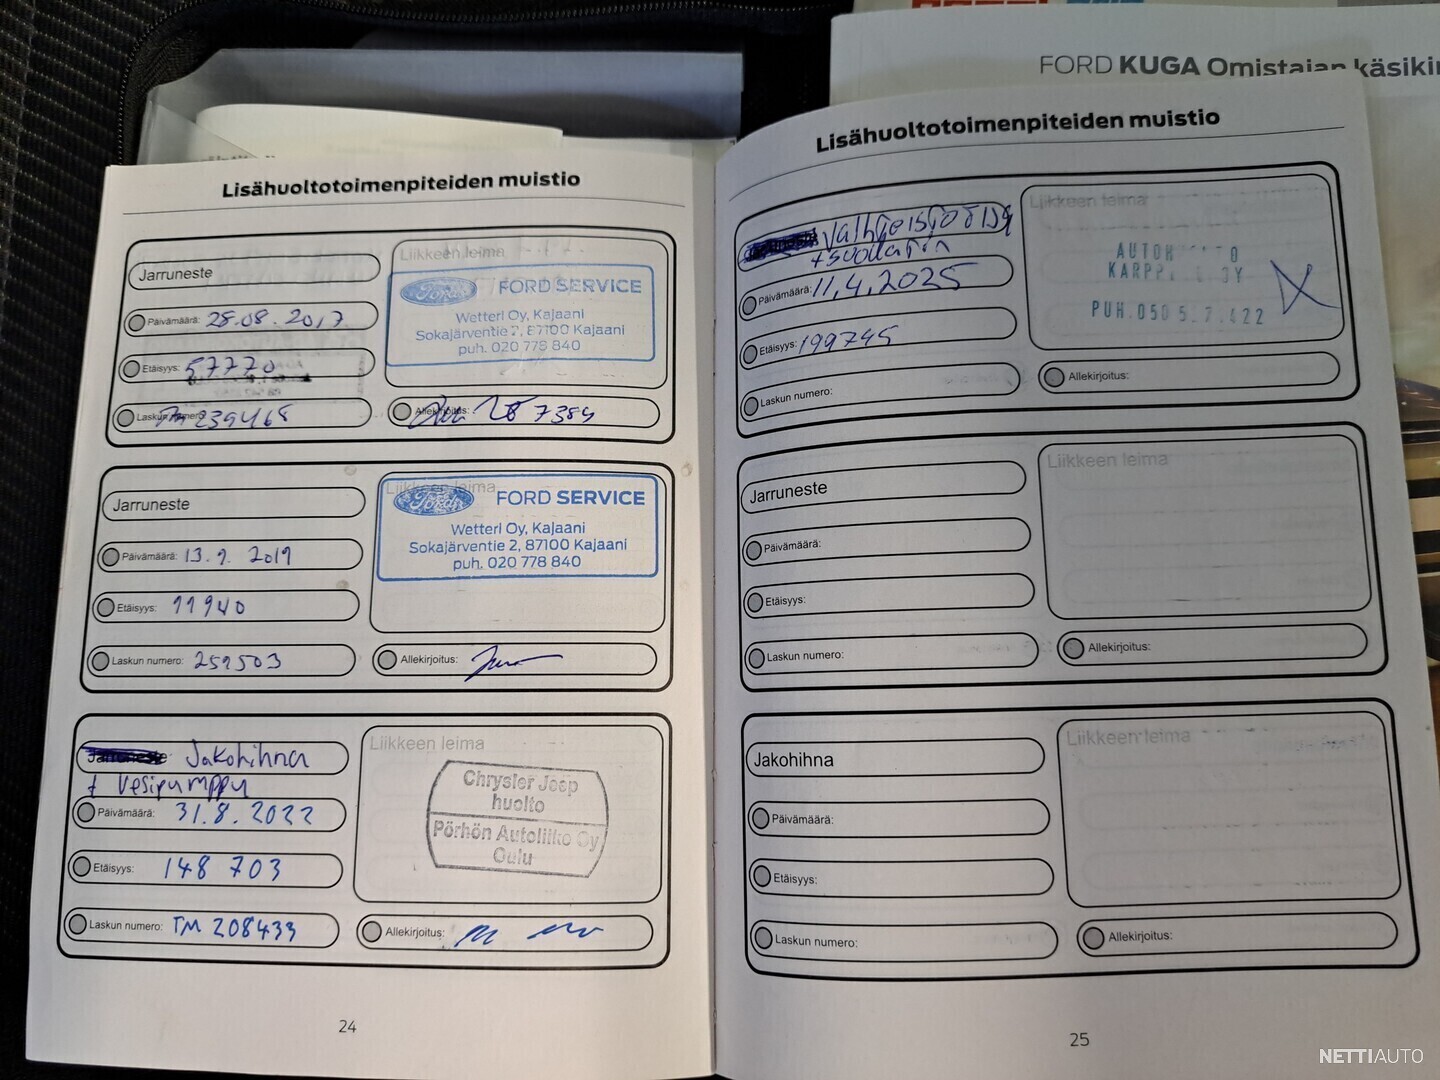 FORD KUGA Omistajan käsikir
Lisähuoltotoimenpiteiden muistio
Jarruneste
Päivämäärä: 28.08.2017
Etäisyys: 57770
Laskun numero: 239468
Liikkeen leima
Ford FORD SERVICE
Wetteri Oy, Kajaani
Sokajärventie 2, 87100 Kajaani
puh. 020 778 840
Allekirjoitus: 7389
Jarruneste
Päivämäärä: 13.9.2019
Etäisyys: 99940
Laskun numero: 259503
Liikkeen leima
Ford FORD SERVICE
Wetteri Oy, Kajaani
Sokajärventie 2, 87100 Kajaani
puh. 020 778 840
Allekirjoitus:
Jarruneste Jakohihna
+ Vesipumppu
Päivämäärä: 31.8.2022
Etäisyys: 148 703
Laskun numero: TM 208433
Liikkeen leima
Chrysler Jeep
huolto
Pörhön Autoliike Oy
Oulu
Allekirjoitus:
24
Lisähuoltotoimenpiteiden muistio
+ suodatin
Päivämäärä: 11.4.2025
Etäisyys: 199745
Laskun numero:
Liikkeen leima
PUH. 050
Allekirjoitus:
Jarruneste
Päivämäärä:
Etäisyys:
Laskun numero:
Liikkeen leima
Allekirjoitus:
Jakohihna
Päivämäärä:
Etäisyys:
Laskun numero:
Liikkeen leima
Allekirjoitus:
25
NETTIAUTO